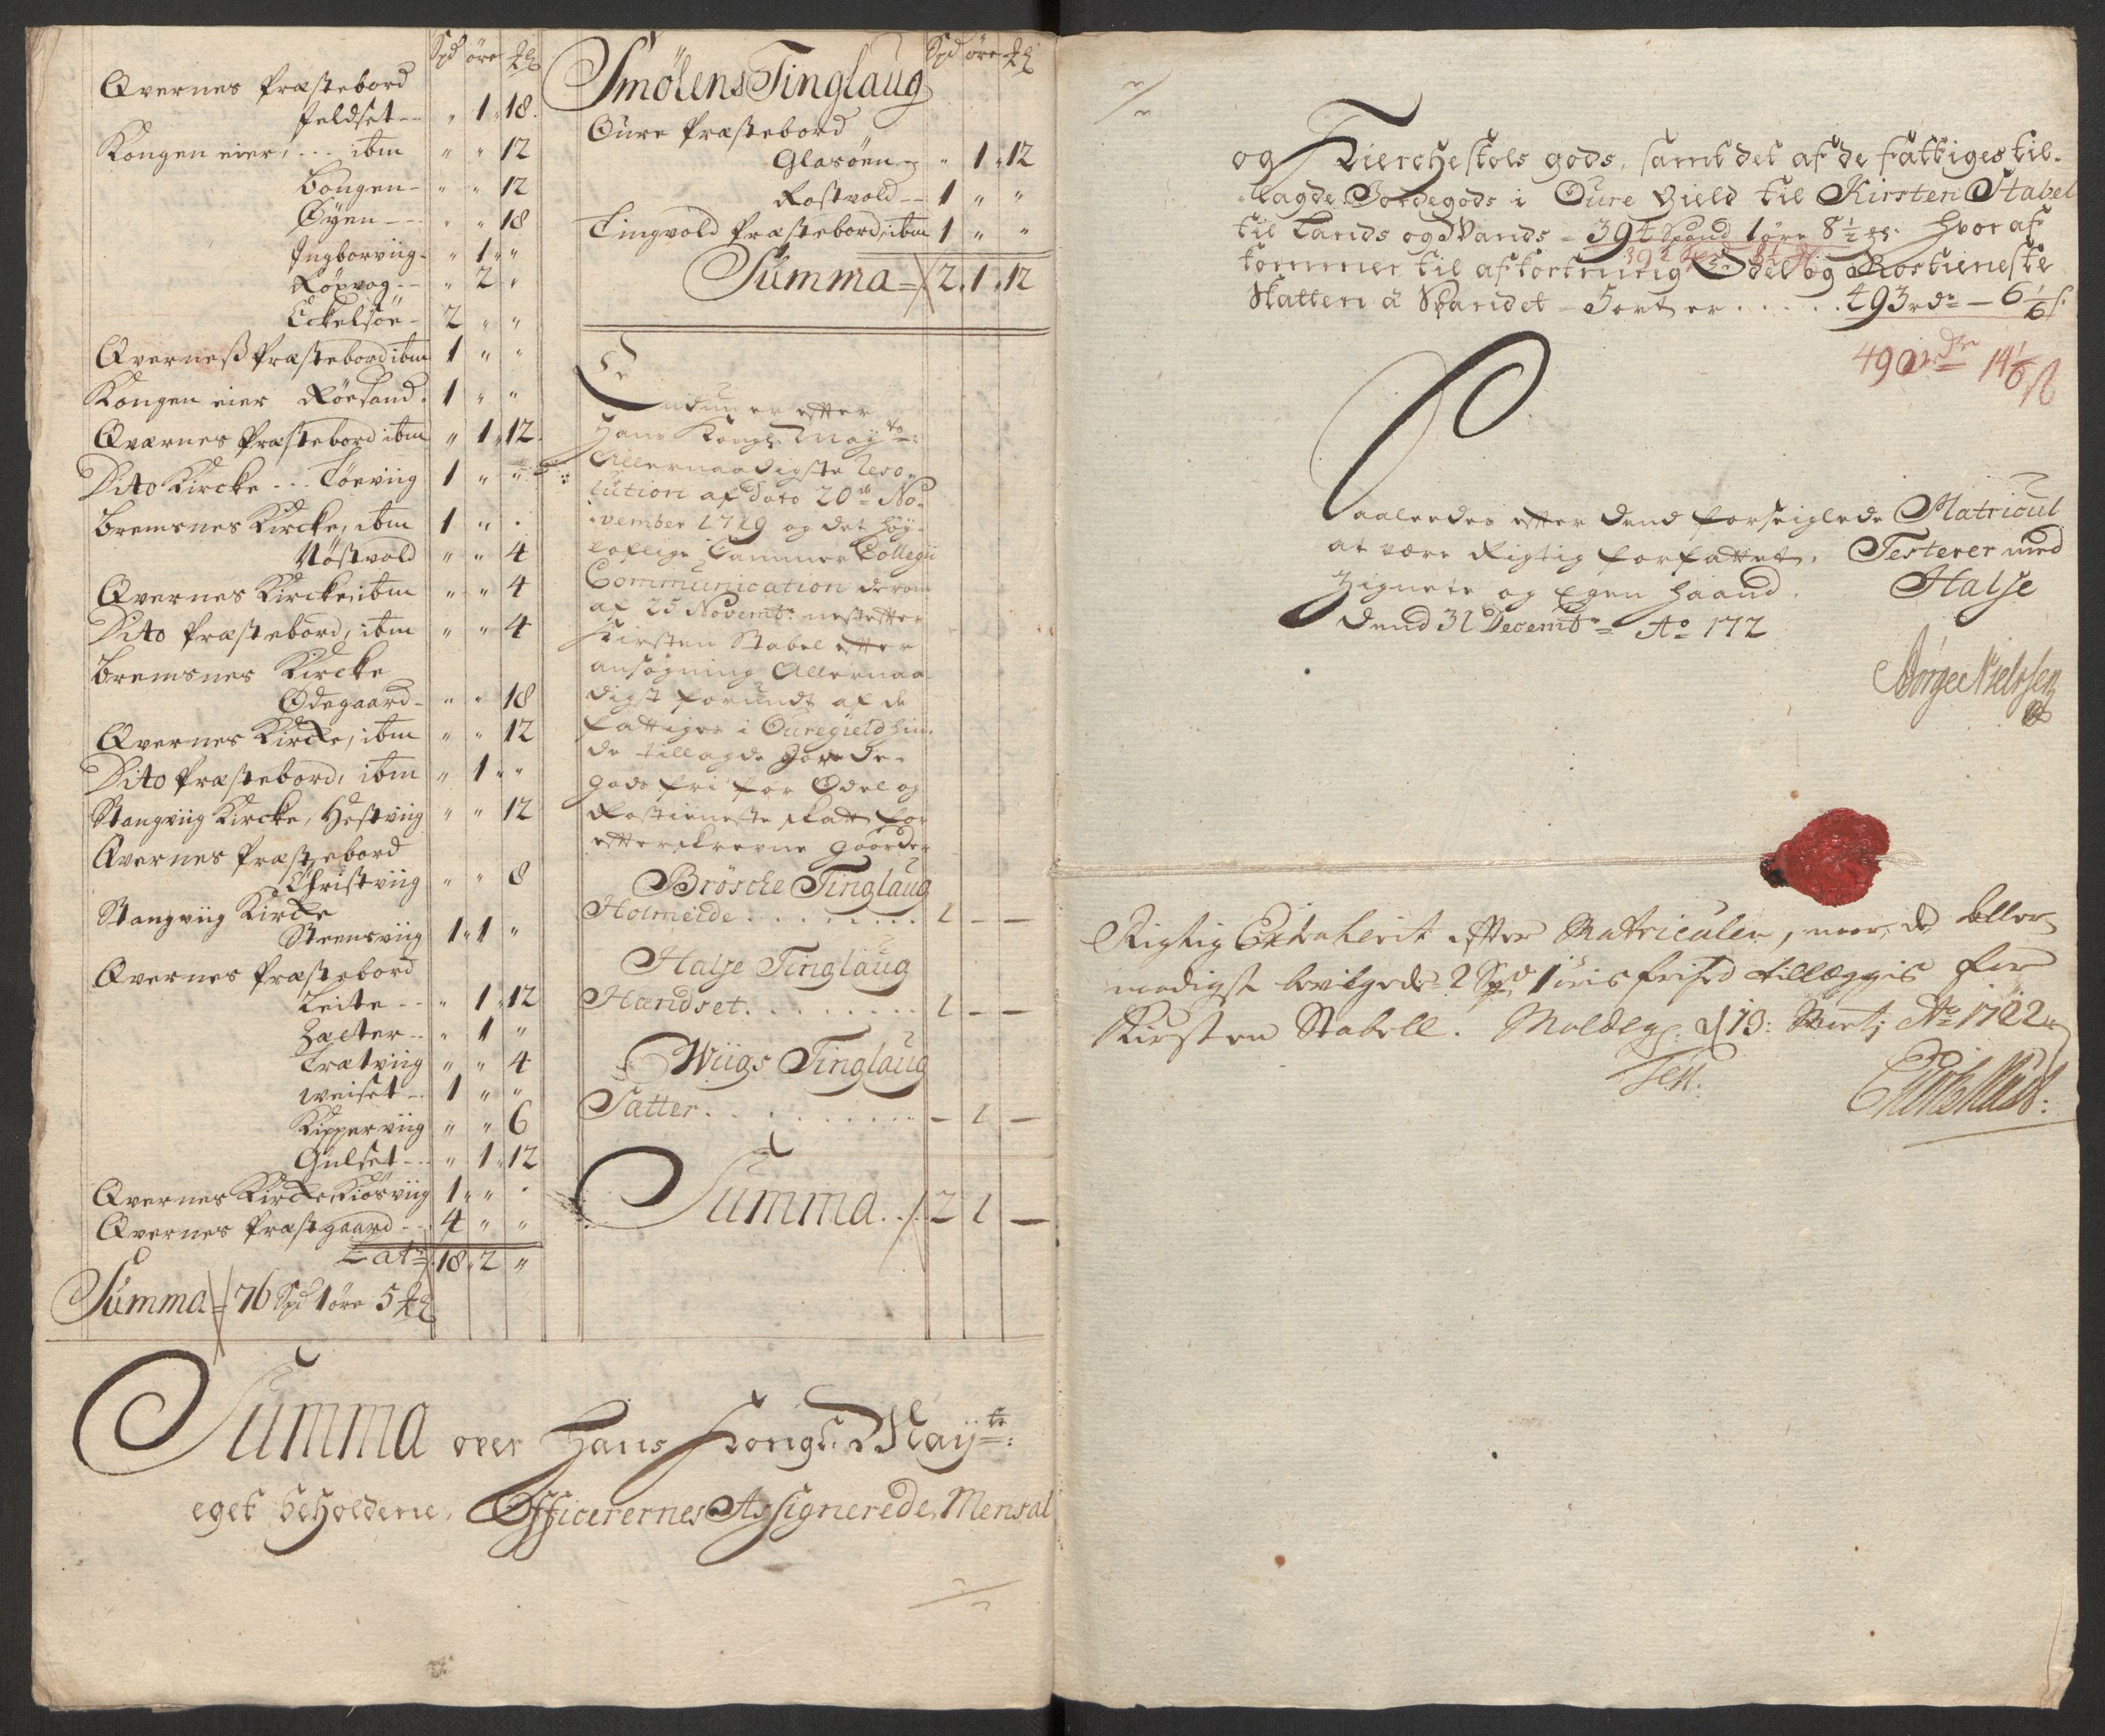 Spd øre
Qvernes Præstebord
Feldset -- " 1 " 18.
Kongen eier, ... ibm " " 12
Bøngen - " " 12
Øÿen --- " " 18
Ingborviig - " 1 " "
Røxvog -- " 2 "
Eckelsøe - 2 " "
Qverneß Præstebord ibm 1 " "
Kongen eier Røesand. 1 " "
Qværnes Præstebord ibm " 1 " 12.
Dito Kircke ... Tøeviig 1 " "
Bremsnes Kircke, ibm 1 " .
Nøstvold " " 4
Qvernes Kircke, ibm " " 4
Dito Præstebord, ibm " " 4
Bremsnes Kircke
Ødegaard - " " 18
Qvernes Kircke, ibm " " 12
Dito Præstebord, ibm " 1 " "
Stangviig Kircke, Hestviig " " 12
Qvernes Præstebord
Christviig " " 8
Stangviig Kircke
Steensviig 1 " 1 "
Qvernes Præstebord
Leite -- " 1 " 12
Sælter -- " 1 "
Trætviig " " 4
weiset -- 1 " "
Kippervig " " 6
Gulset --- " 1 " 12
Qvernes Kircke, Kiørsviig 1 " " .
Qvernes Præstgaard -- 4 " "
Lat 18 " 2 "
Summa = 76 Spd 1 øre 5
Spd øre
Smølens Tinglaug
Øure Præstebord
Glasøen - " 1 " 12
Rostvold -- 1 " "
Tingvold Præstebord, ibm 1 " "
Summa = 2 " 1 " 12
Endnu er efter
Hans Kongl. Mayts:
Allernaadigste Reso-
lution af dato 20de No-
vember 1719 og det høy-
loflige Cammer Collegii
Communication derom
af 25 Novembr: nestefter
Kirsten Stabel efter
ansøgning Allernaa-
digst forundt af de
fattiges i Øuregield hin-
de tillagde Jorde-
gods fri for Odel og
Rostieneste skatt for
efterskrevne gaarder
Brøsche Tinglaug
Holmeide ........ 1 — —
Halse Tinglaug
Hændset ......... 1 — —
Wiigs Tinglaug
Sætter .......... — 1 —
Summa ... 2 1 —
Summa over Hans Kongl. Mayts:
eget beholdene, Officerernes Assignerede, Mensal
og Kierchestols gods, samt det af de fattiges til-
lagde Jordegods i Øure Gield til Kirsten Stabel
til Lands og Vands = 394 Spand 1 øre 8½ ... hvoraf
kommer til afkortning Odel og Rostieneste
Skatten à Spandet - 5 ort er ..... 493 rdr — 6 1/6 s.
490 rdr 14 1/6 ß
Saaledes efter dend forseiglede Matricul
at være Rigtig forfattet. Testerer med
Zignete og Egen haand. Halse
dend 31 Decembr Ao 172
Børge Nielssen
Rigtig Extraherit efter Matriculen, naar de aller-
naadigst bevilgede 2 Spd 1 øris frihed tillæggis for
Kirsten Stabell. Moldeg: d 13: Ao 1722
Test.